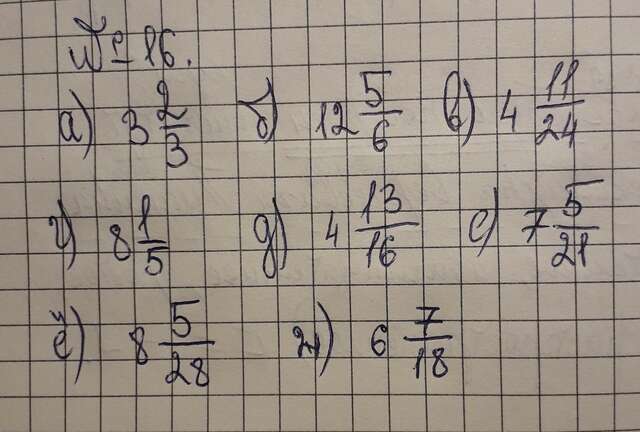 № 16.
а) 3 2/3 б) 12 5/6 в) 4 11/24
г) 8 1/5 д) 4 13/16 е) 7 5/21
ё) 8 5/28 ж) 6 7/18